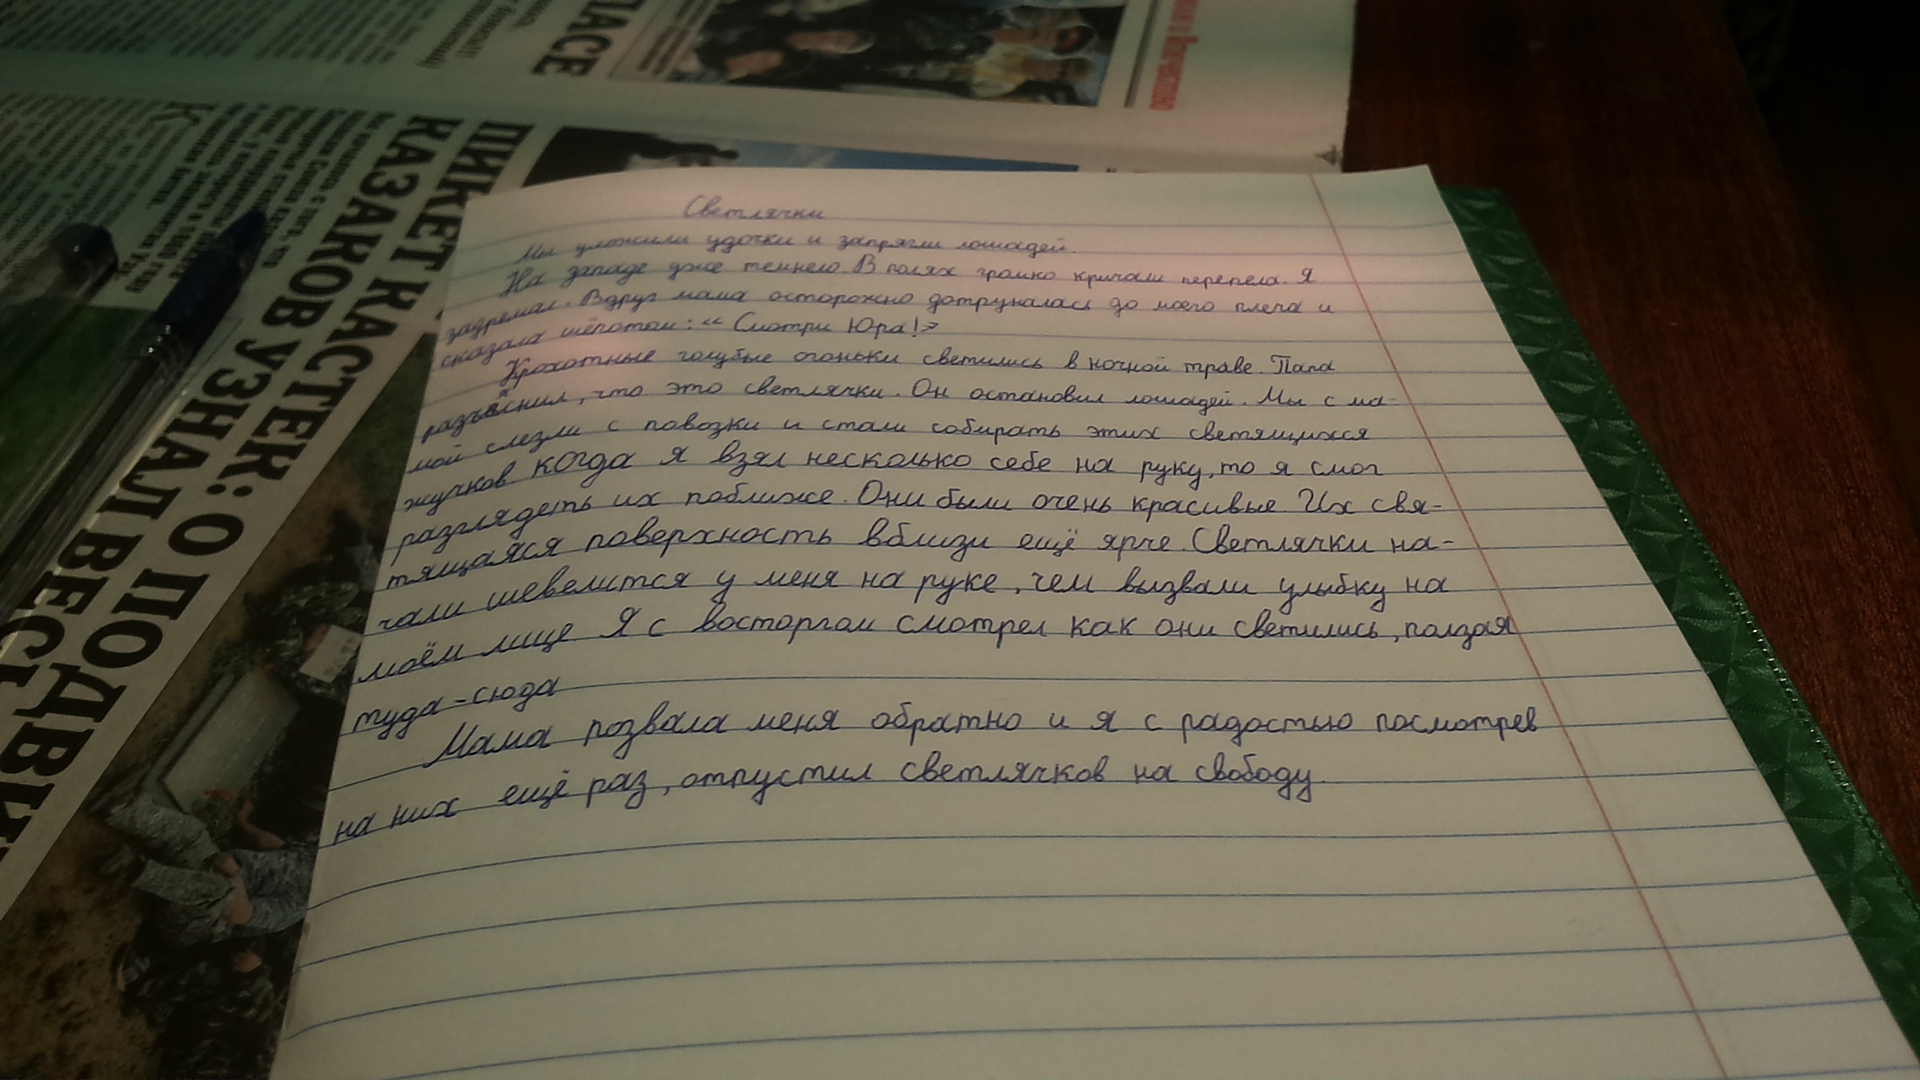 Светлячки
Мы уложили удочки и запрягли лошадей.
На западе уже темнело. В полях громко кричали перепела. Я
задремал. Вдруг мама осторожно дотронулась до моего плеча и
сказала шёпотом: « Смотри Юра!»
Крохотные голубые огоньки светились в ночной траве. Папа
разъяснил, что это светлячки. Он остановил лошадей. Мы с ма-
мой слезли с повозки и стали собирать этих светящихся
жучков когда я взял несколько себе на руку, то я смог
разглядеть их поближе. Они были очень красивые Их свя-
тящаяся поверхность вблизи ещё ярче. Светлячки на-
чали шевелится у меня на руке, чем вызвали улыбку на
моём лице Я с восторгом смотрел как они светились, ползая
туда-сюда
Мама позвала меня обратно и я с радостью посмотрев
на них ещё раз, отпустил светлячков на свободу
ПИКЕТ КАСТЕК: О ПОДВИ
КАЗАКОВ УЗНАЛ ВЕСЬ